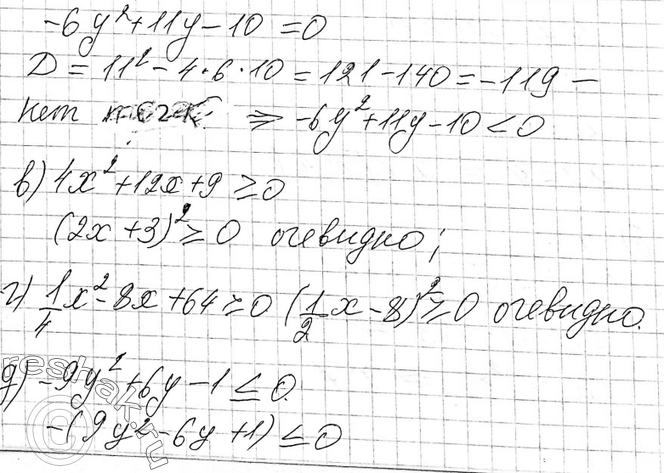 -6y²+11y-10=0
D=11²-4*6*10=121-140=-119-
нет ⇒ -6y²+11y-10<0
в) 4x²+12x+9≥0
(2x+3)²≥0 очевидно;
г) 1/4x²-8x+64≥0 (1/2x-8)²≥0 очевидно.
д) -9y²+6y-1≤0
-(9y²-6y+1)≤0